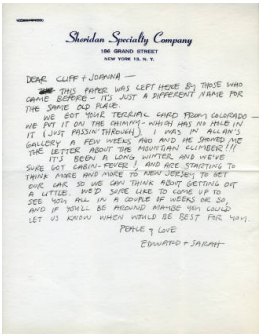 Sheridan Specialty Company
186 GRAND STREET
NEW YORK 13, N.Y.
DEAR CLIFF + JOANNA -
THIS PAPER WAS LEFT HERE BY THOSE WHO
CAME BEFORE - IT'S JUST A DIFFERENT NAME FOR
THE SAME OLD PLACE.
WE GOT YOUR TERRIAL CARD FROM COLORADO -
WE PUT IT ON THE CHIMNY - WHICH HAS NO HOLE IN
IT (JUST PASSIN' THROUGH). I WAS IN ALLAN'S
GALLERY A FEW WEEKS AGO AND HE SHOWED ME
THE LETTER ABOUT THE MOUNTIAN CLIMBER!!!
IT'S BEEN A LONG, WINTER AND WE'VE
SURE GOT CABIN-FEVER! AND ARE STARTING TO
THINK MORE AND MORE TO NEW JERSEY TO GET
OUR CAR SO WE CAN THINK ABOUT GETTING OUT
A LITTLE. WE'D SURE LIKE TO COME UP TO
SEE YOU ALL IN A COUPLE OF WEEKS OR SO,
AND IF YOU'LL BE AROUND MAYBE YOU COULD
LET US KNOW WHEN WOULD BE BEST FOR YOU.
PEACE & LOVE
EDWARD + SARAH